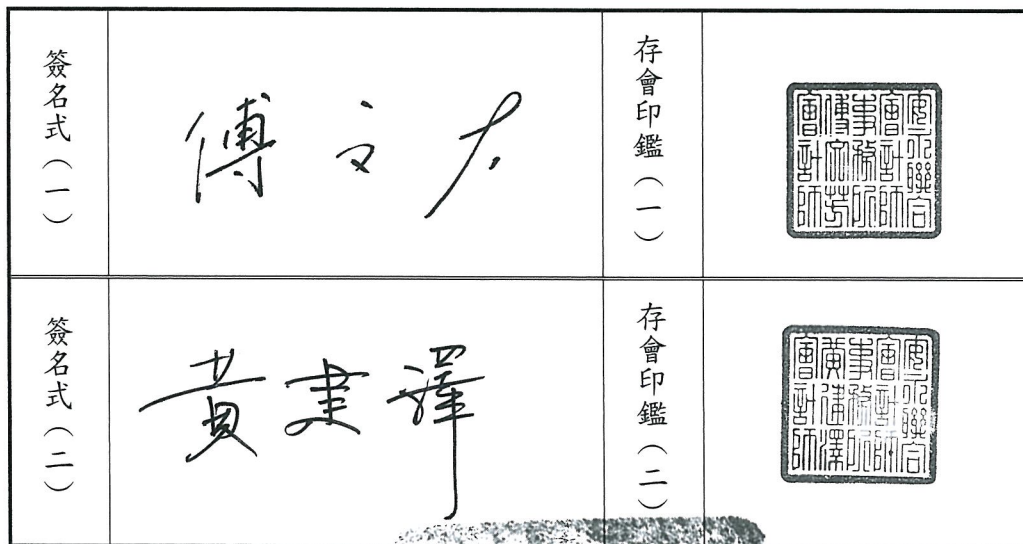 簽名式（一）
傅文芳
存會印鑑（一）
安永聯合
會計師
事務所
傅文芳
會計師
簽名式（二）
黃建澤
存會印鑑（二）
安永聯合
會計師
事務所
黃建澤
會計師